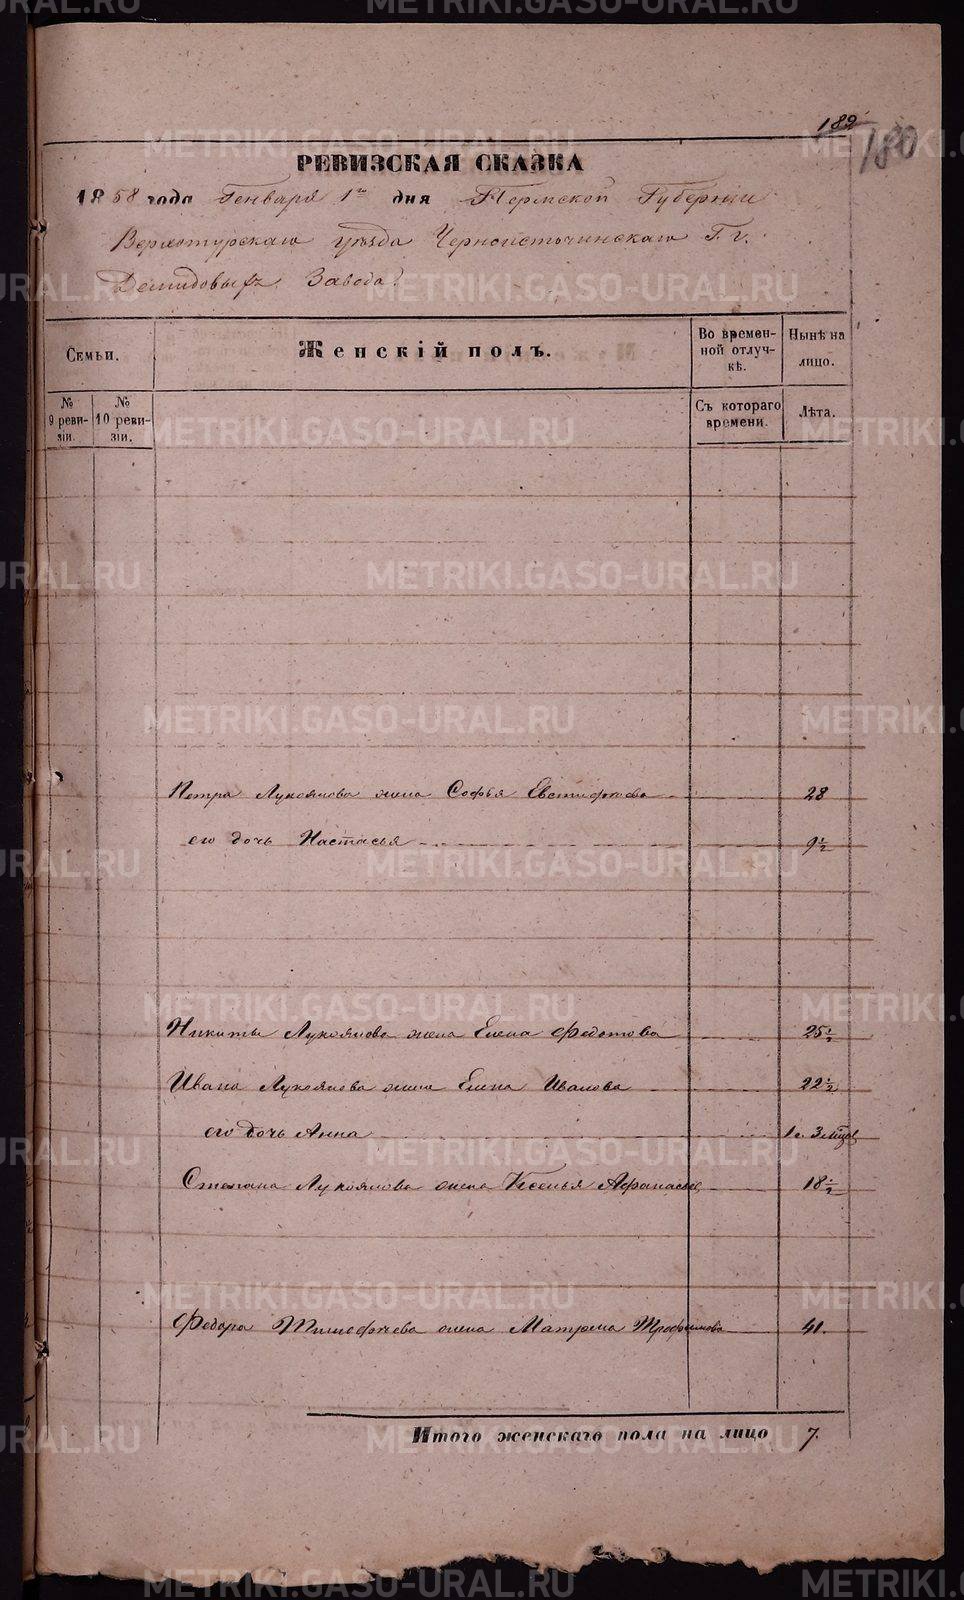 189
180
РЕВИЗСКАЯ СКАЗКА
1858 года Генваря 1го дня Пермской Губерніи
Верхотурскаго уѣзда Черноисточинскаго Г. г.
Демидовыхъ Завода
Семьи.
Женскій полъ.
Во временной отлучкѣ.
Нынѣ на лицо.
№ 9 ревизіи.
№ 10 ревизіи.
Съ котораго времени.
Лѣта.
Петра Лукоянова жена Софья 28
его дочь Настасья 9 1/2
Никиты Лукоянова жена Елена Федотова 25 1/2
Ивана Лукоянова жена Елена Иванова 22 1/2
его дочь Анна 1 г. 3 мѣся
Степана Лукоянова жена Ксенья Афанасье 18 1/2
Федора Тимофеева жена Матрена Трофимова 41.
Итого женскаго пола на лицо 7.
METRIKI.GASO-URAL.RU